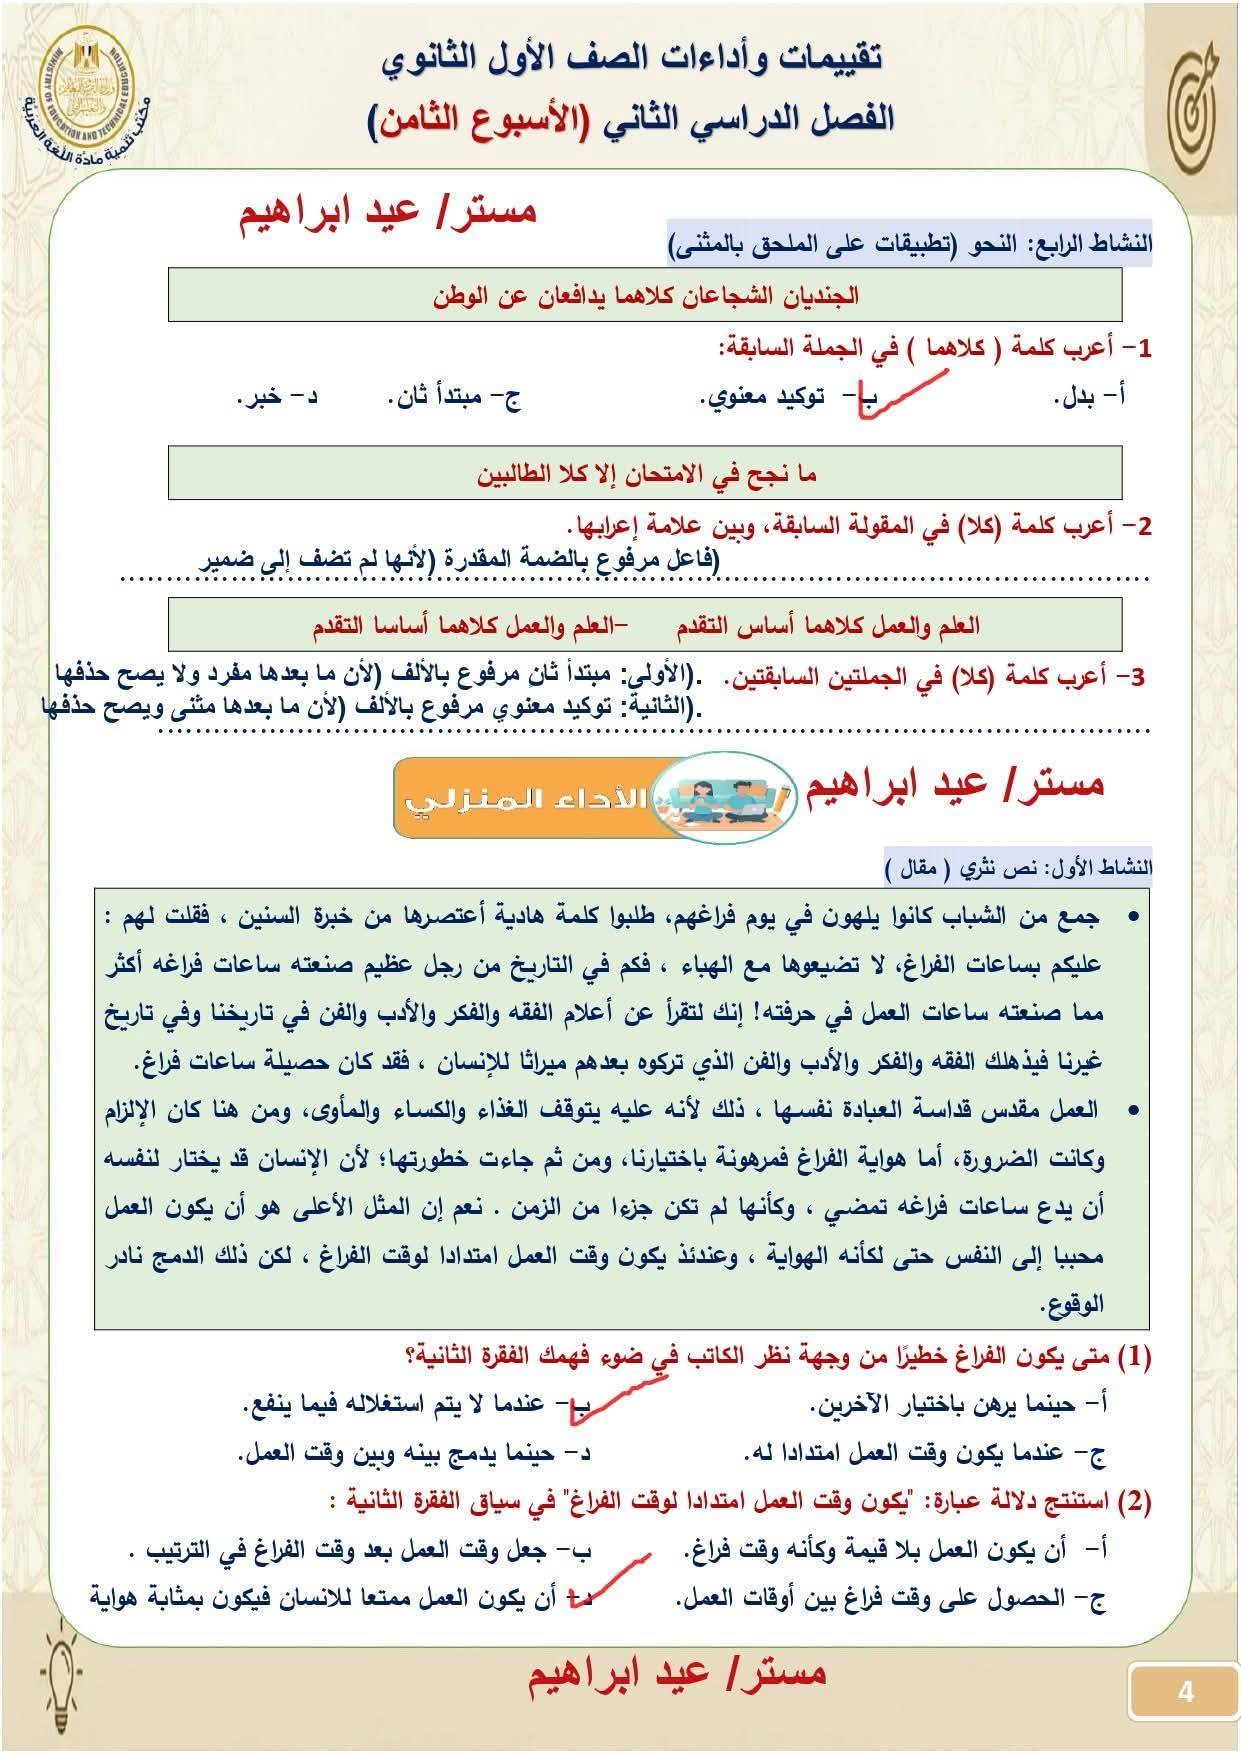 تقييمات وأداءات الصف الأول الثانوي
الفصل الدراسي الثاني (الأسبوع الثامن)
MINISTRY OF EDUCATION AND TECHNICAL EDUCATION
مكتب تنمية مادة اللغة العربية
مستر/ عيد ابراهيم
النشاط الرابع: النحو (تطبيقات على الملحق بالمثنى)
الجنديان الشجاعان كلاهما يدافعان عن الوطن
1- أعرب كلمة ( كلاهما ) في الجملة السابقة:
أ- بدل. ب- توكيد معنوي. ج- مبتدأ ثان. د- خبر.
ما نجح في الامتحان إلا كلا الطالبين
2- أعرب كلمة (كلا) في المقولة السابقة، وبين علامة إعرابها.
(فاعل مرفوع بالضمة المقدرة (لأنها لم تضف إلى ضمير
العلم والعمل كلاهما أساس التقدم -العلم والعمل كلاهما أساسا التقدم
3- أعرب كلمة (كلا) في الجملتين السابقتين. .(الأولى: مبتدأ ثانٍ مرفوع بالألف (لأن ما بعدها مفرد ولا يصح حذفها
.(الثانية: توكيد معنوي مرفوع بالألف (لأن ما بعدها مثنى ويصح حذفها
مستر/ عيد ابراهيم
الأداء المنزلي
النشاط الأول: نص نثري ( مقال )
• جمع من الشباب كانوا يلهون في يوم فراغهم، طلبوا كلمة هادية أعتصرها من خبرة السنين ، فقلت لهم :
عليكم بساعات الفراغ، لا تضيعوها مع الهباء ، فكم في التاريخ من رجل عظيم صنعته ساعات فراغه أكثر
مما صنعته ساعات العمل في حرفته! إنك لتقرأ عن أعلام الفقه والفكر والأدب والفن في تاريخنا وفي تاريخ
غيرنا فيذهلك الفقه والفكر والأدب والفن الذي تركوه بعدهم ميراثا للإنسان ، فقد كان حصيلة ساعات فراغ.
• العمل مقدس قداسة العبادة نفسها ، ذلك لأنه عليه يتوقف الغذاء والكساء والمأوى، ومن هنا كان الإلزام
وكانت الضرورة، أما هواية الفراغ فمرهونة باختيارنا، ومن ثم جاءت خطورتها؛ لأن الإنسان قد يختار لنفسه
أن يدع ساعات فراغه تمضي ، وكأنها لم تكن جزءا من الزمن . نعم إن المثل الأعلى هو أن يكون العمل
محببا إلى النفس حتى لكأنه الهواية ، وعندئذ يكون وقت العمل امتدادا لوقت الفراغ ، لكن ذلك الدمج نادر
الوقوع.
(1) متى يكون الفراغ خطيرًا من وجهة نظر الكاتب في ضوء فهمك الفقرة الثانية؟
أ- حينما يرهن باختيار الآخرين. ب- عندما لا يتم استغلاله فيما ينفع.
ج- عندما يكون وقت العمل امتدادا له. د- حينما يدمج بينه وبين وقت العمل.
(2) استنتج دلالة عبارة: "يكون وقت العمل امتدادا لوقت الفراغ" في سياق الفقرة الثانية :
أ- أن يكون العمل بلا قيمة وكأنه وقت فراغ. ب- جعل وقت العمل بعد وقت الفراغ في الترتيب .
ج- الحصول على وقت فراغ بين أوقات العمل. د- أن يكون العمل ممتعا للانسان فيكون بمثابة هواية
مستر/ عيد ابراهيم
4